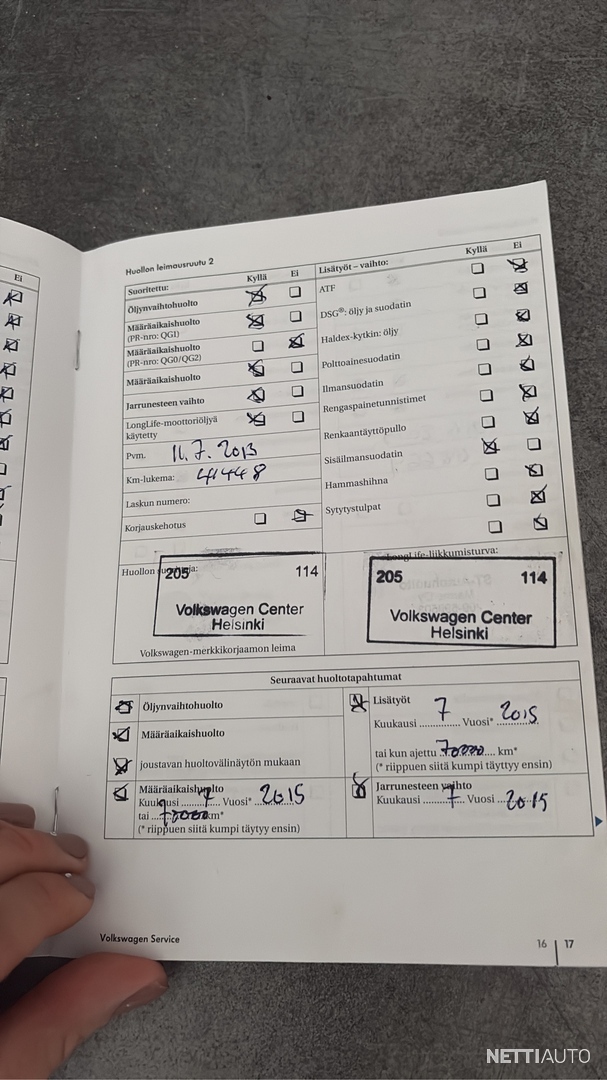 Ei
Huollon leimausruutu 2
Suoritettu: Kyllä Ei
Öljynvaihtohuolto
Määräaikaishuolto
(PR-nro: QG1)
Määräaikaishuolto
(PR-nro: QG0/QG2)
Määräaikaishuolto
Jarrunesteen vaihto
LongLife-moottoriöljyä
käytetty
Pvm. 11.7.2013
Km-lukema: 41448
Laskun numero:
Korjauskehotus
Lisätyöt – vaihto: Kyllä Ei
ATF
DSG®: öljy ja suodatin
Haldex-kytkin: öljy
Polttoainesuodatin
Ilmansuodatin
Rengaspainetunnistimet
Renkaantäyttöpullo
Sisäilmansuodatin
Hammashihna
Sytytystulpat
Huollon
205 114
Volkswagen Center
Helsinki
Volkswagen-merkkikorjaamon leima
LongLife-liikkumisturva:
205 114
Volkswagen Center
Helsinki
Seuraavat huoltotapahtumat
Öljynvaihtohuolto
Määräaikaishuolto
joustavan huoltovälinäytön mukaan
Määräaikaishuolto
Kuukausi 7 Vuosi* 2015
tai 70000 km*
(* riippuen siitä kumpi täytyy ensin)
Lisätyöt
Kuukausi 7 Vuosi* 2015
tai kun ajettu 70000 km*
(* riippuen siitä kumpi täyttyy ensin)
Jarrunesteen vaihto
Kuukausi 7 Vuosi 2015
Volkswagen Service
16 | 17
NETTIAUTO